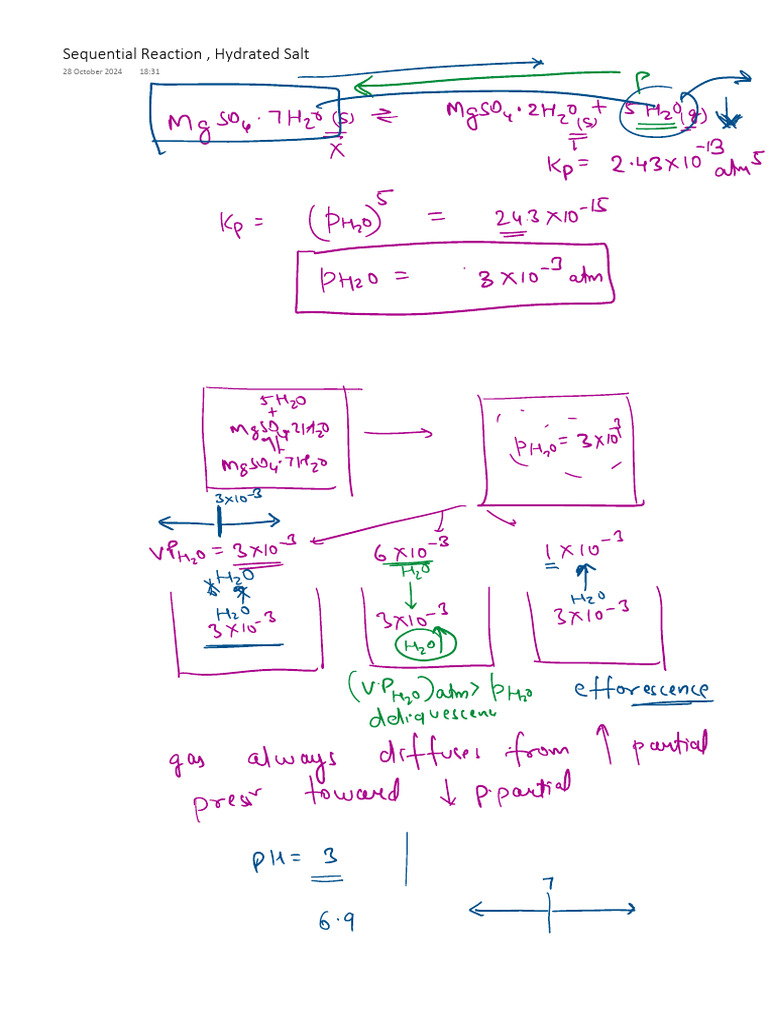 Sequential Reaction , Hydrated Salt
28 October 2024 18:31
P
MgSO₄·7H₂O (s) ⇌ MgSO₄·2H₂O (s) + 5H₂O(g)
x
Kp = 2.43×10⁻¹³ atm⁵
Kp = (pH₂O)⁵ = 24.3×10⁻¹⁵
pH₂O = 3×10⁻³ atm
5H₂O
+
MgSO₄·2H₂O
MgSO₄·7H₂O
pH₂O = 3×10⁻³
3×10⁻³
VPH₂O = 3×10⁻³ 6×10⁻³ 1×10⁻³
H₂O H₂O
H₂O H₂O
3×10⁻³ 3×10⁻³ 3×10⁻³
H₂O↑
(V.PH₂O)atm > pH₂O efforescence
deliquescence
gas always diffuses from ↑ partial
pressr toward ↓ p.partial
pH = 3
7
6.9